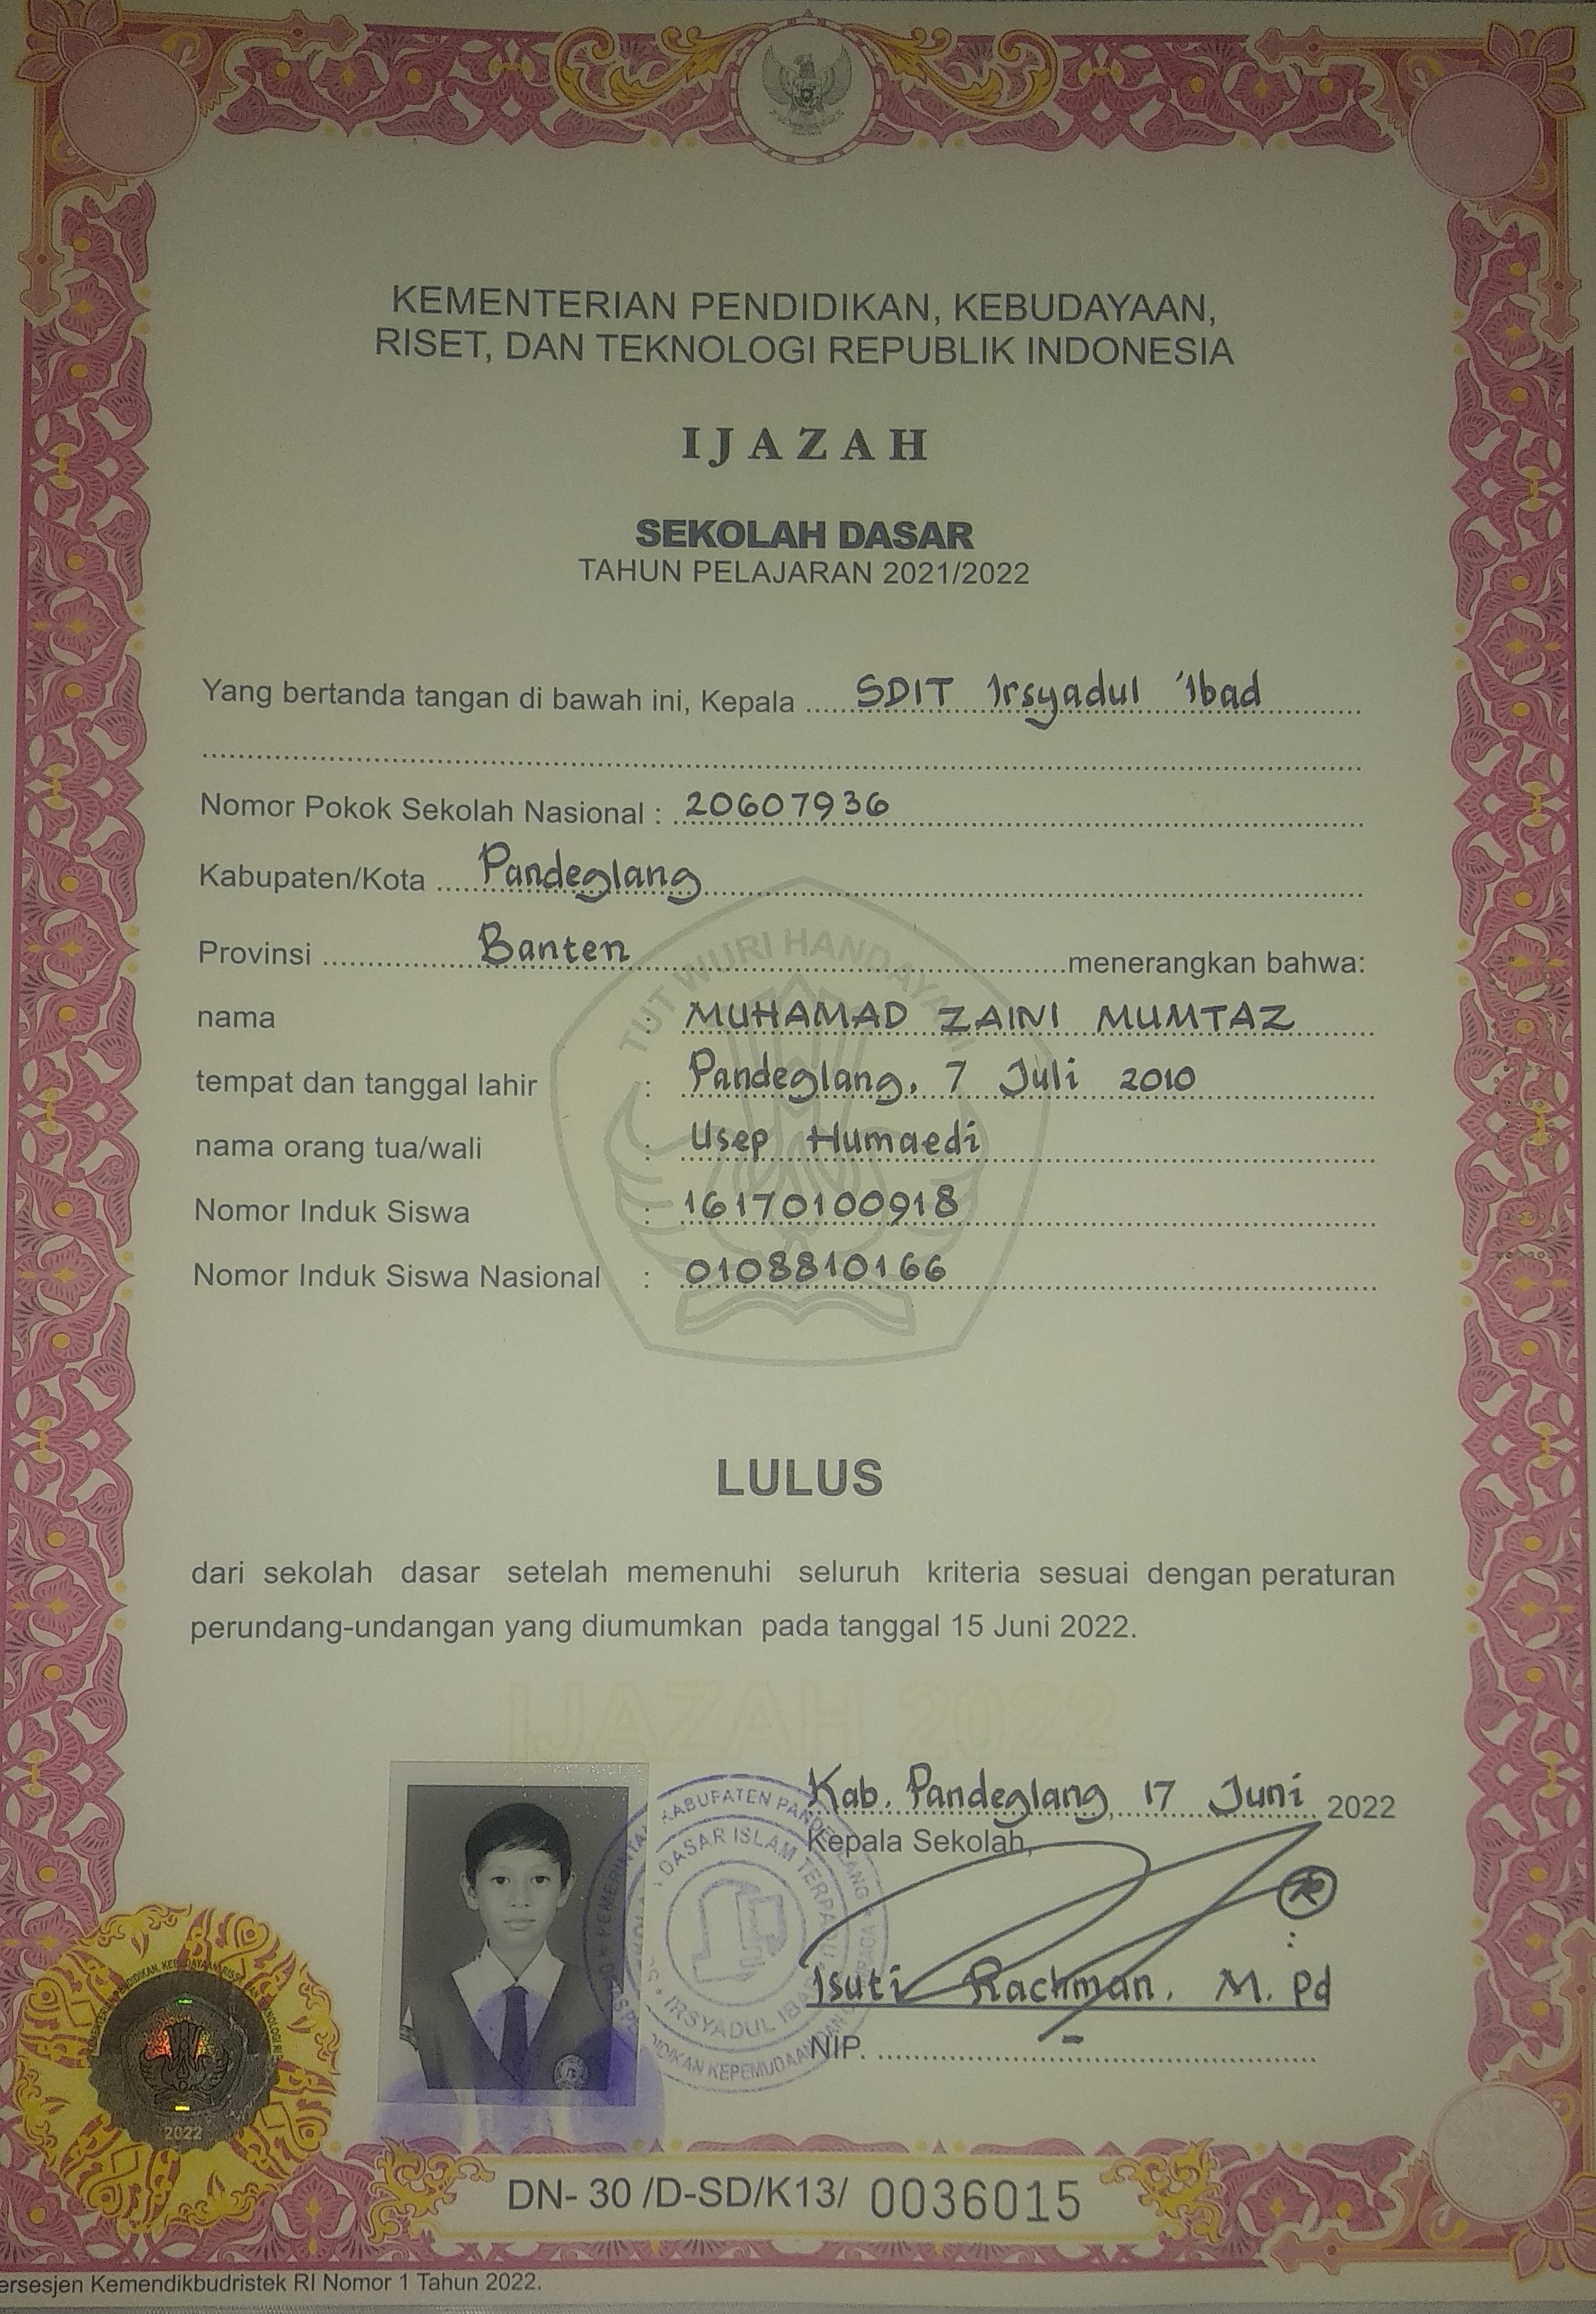 KEMENTERIAN PENDIDIKAN, KEBUDAYAAN,
RISET, DAN TEKNOLOGI REPUBLIK INDONESIA
IJAZAH
SEKOLAH DASAR
TAHUN PELAJARAN 2021/2022
Yang bertanda tangan di bawah ini, Kepala SDIT Irsyadul 'Ibad
Nomor Pokok Sekolah Nasional : 20607936
Kabupaten/Kota Pandeglang
Provinsi Banten menerangkan bahwa:
TUT WURI HANDAYANI
nama : MUHAMAD ZAINI MUMTAZ
tempat dan tanggal lahir : Pandeglang, 7 Juli 2010
nama orang tua/wali : Usep Humaedi
Nomor Induk Siswa : 16170100918
Nomor Induk Siswa Nasional : 0108810166
LULUS
dari sekolah dasar setelah memenuhi seluruh kriteria sesuai dengan peraturan
perundang-undangan yang diumumkan pada tanggal 15 Juni 2022.
IJAZAH 2022
Kab. Pandeglang, 17 Juni 2022
Kepala Sekolah,
KABUPATEN PANDEGLANG
DASAR ISLAM TERPADU
IRSYADUL IBAD
Isuti Rachman, M.Pd
NIP. -
2022
DN- 30 /D-SD/K13/ 0036015
ersesjen Kemendikbudristek RI Nomor 1 Tahun 2022.